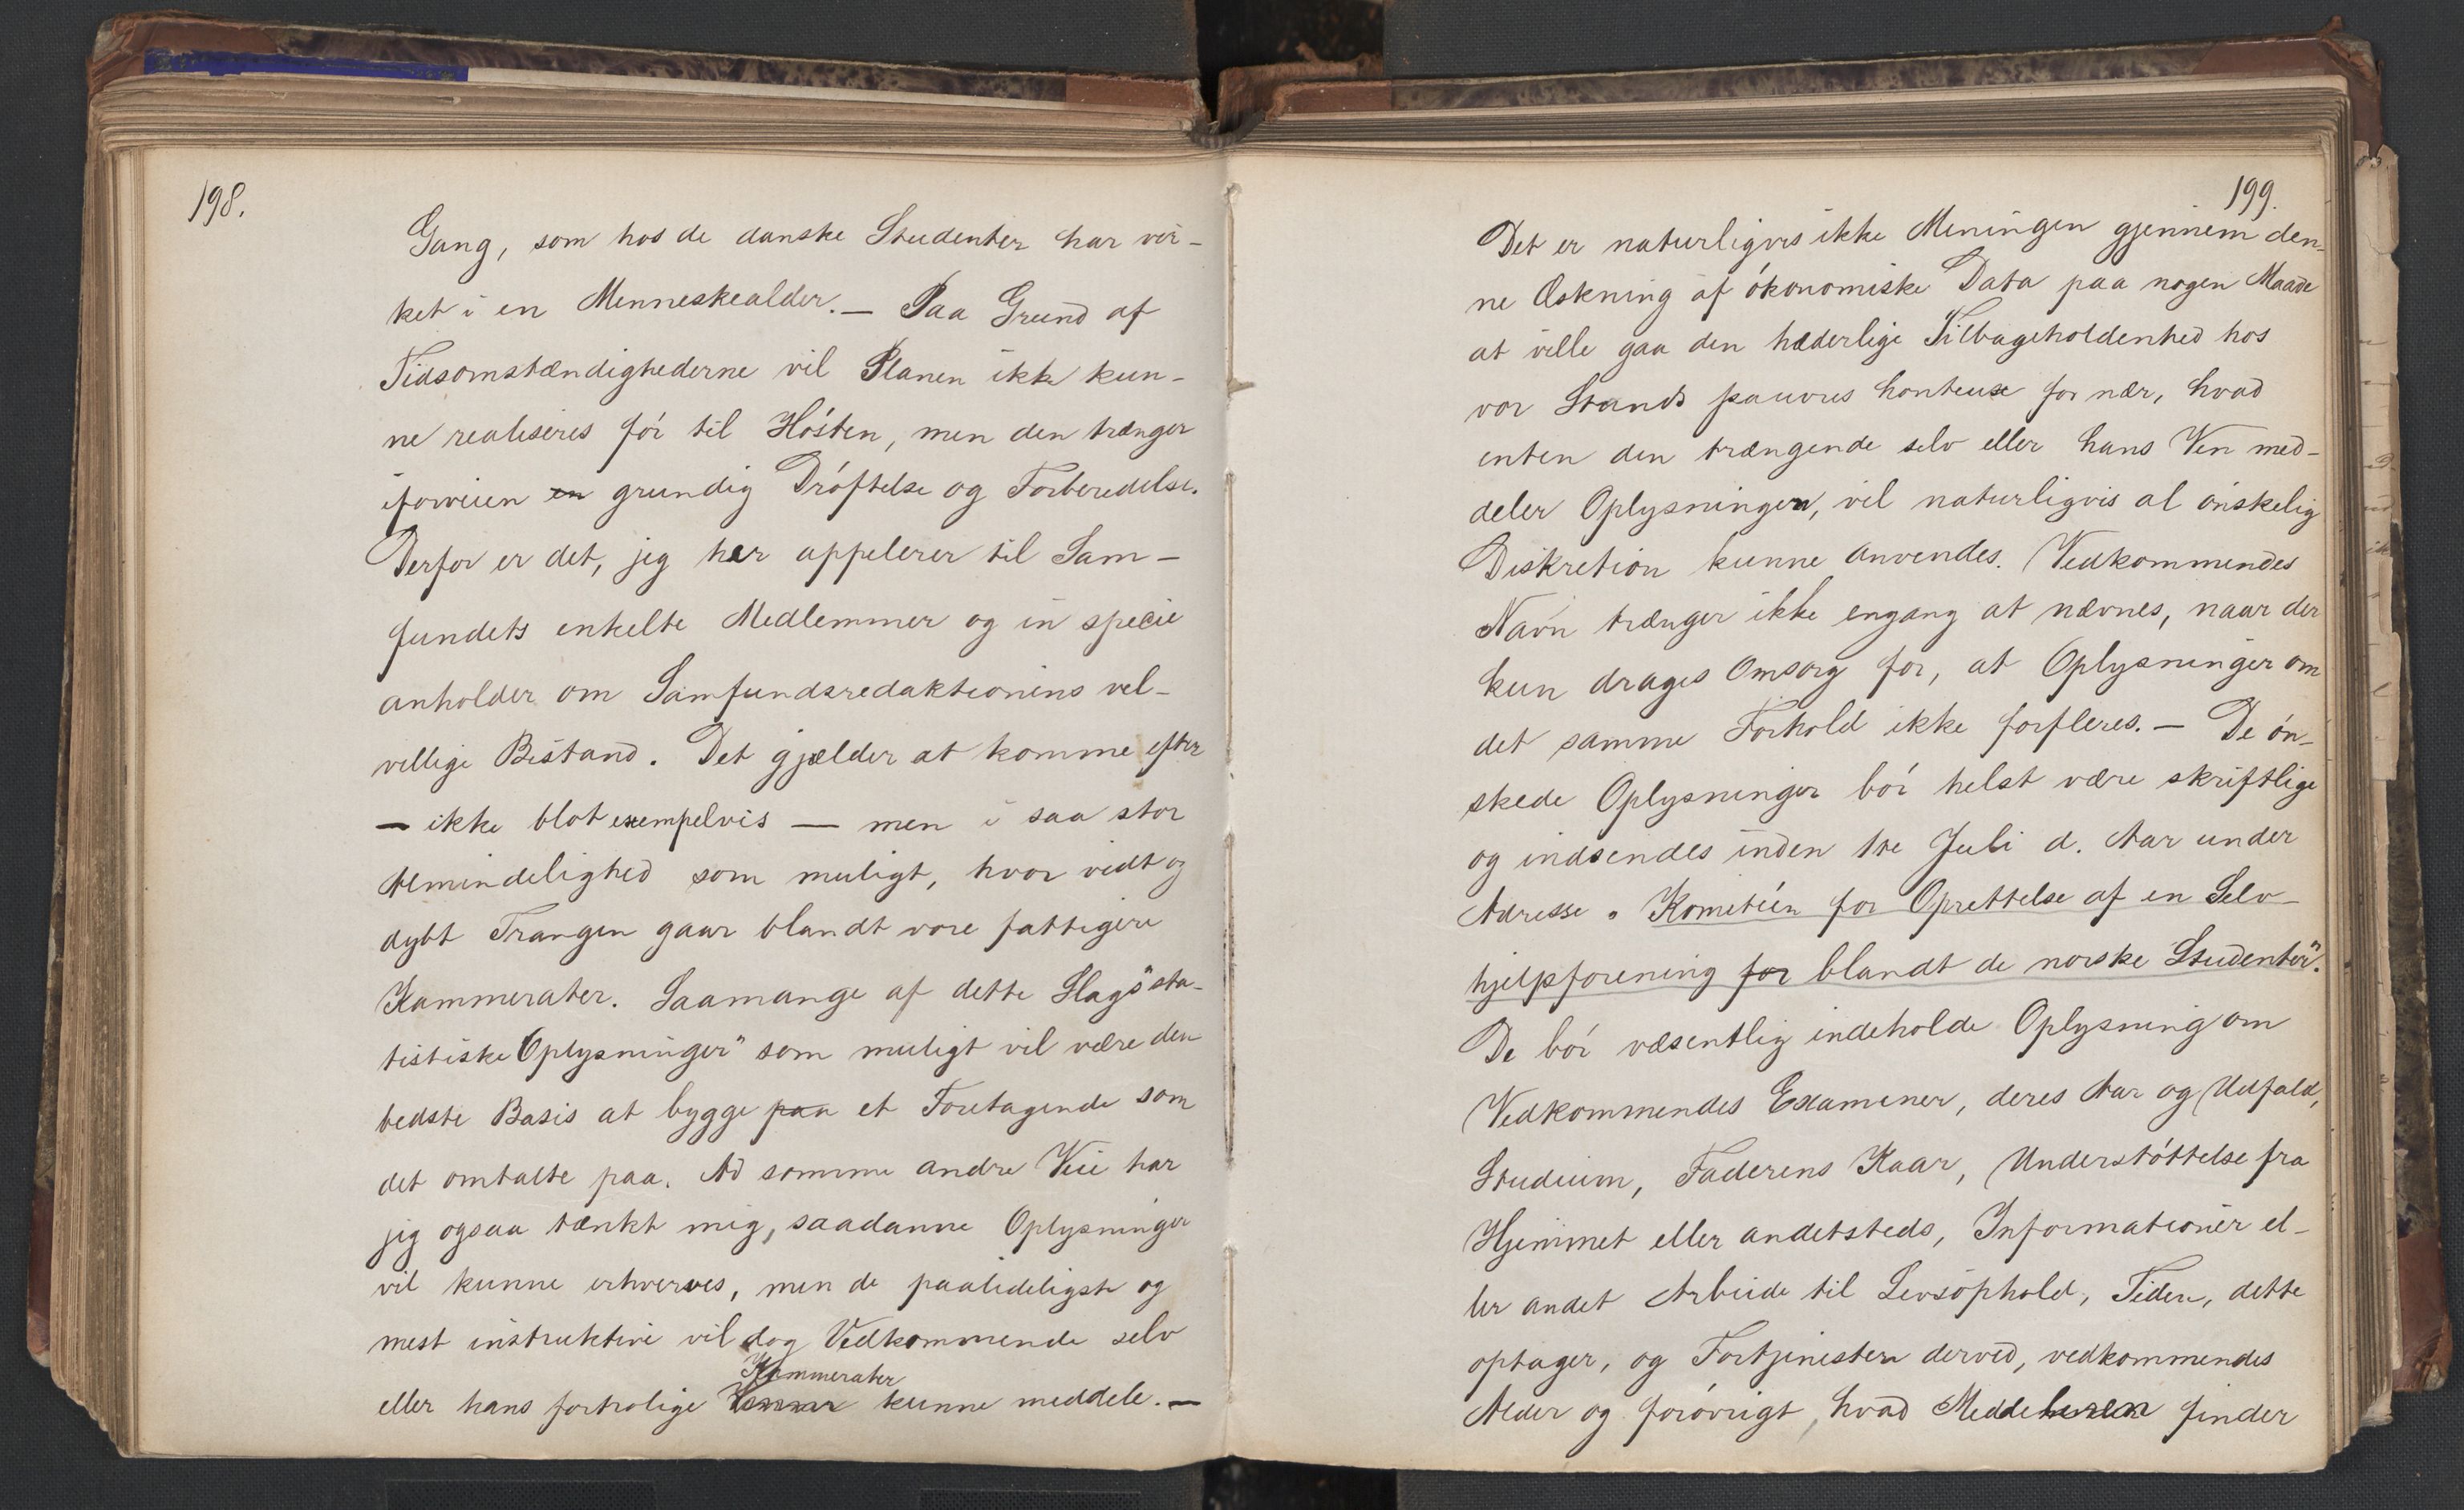 198.
Gang, som hos de danske Studenter har vir-
ket i en Menneskealder. — Paa Grund af
Tidsomstændighederne vil Planen ikke kun-
ne realiseres før til Høsten, men den trænger
iforveien en grundig Drøftelse og Forberedelse.
Derfor er det, jeg her appelerer til Sam-
fundets enkelte Medlemmer og in specie
anholder om Samfundsredaktionens vel-
villige Bistand. Det gjælder at komme efter
— ikke blot exempelvis — men i saa stor
Almindelighed som muligt, hvor vidt og
dybt Trangen gaar blandt vore fattigere
Kammerater. Saamange af dette Slags "sta-
tistiske Oplysninger" som muligt vil være den
bedste Basis at bygge paa et Foretagende som
det omtalte paa. Ad somme andre Veie har
jeg ogsaa tænkt mig, saadanne Oplysninger
vil kunne erhverves, men de paalideligste og
mest instruktive vil dog Vedkommende selv
Kammerater
eller hans fortrolige Venner kunne meddele. —
199.
Det er naturligvis ikke Meningen gjennem den-
ne Æskning af økonomiske Data paa nogen Maade
at ville gaa den hæderlige Tilbageholdenhed hos
vor Stands pauvres honteuse for nær, hvad
enten den trængende selv eller hans Ven med-
deler Oplysningen, vil naturligvis al ønskelig
Diskretion kunne anvendes. Vedkommendes
Navn trænger ikke engang at nævnes, naar der
kun drages Omsorg for, at Oplysninger om
det samme Forhold ikke forfleres. — De øn-
skede Oplysninger bør helst være skriftlige
og indsendes inden 1te Juli d. Aar under
Adresse „Kometéen for Oprettelse af en Selv-
hjelpforening for blandt de norske Studenter".
De bør væsentlig indeholde Oplysning om
Vedkommendes Examener, deres Aar og Udfald,
Studium, Faderens Kaar, Understøttelse fra
Hjemmet eller andetsteds, Informationer el-
ler andet Arbeide til Livsophold, Tiden, dette
optager, og Fortjenesten derved, vedkommendes
Alder og forøvrigt, hvad Meddeleren finder